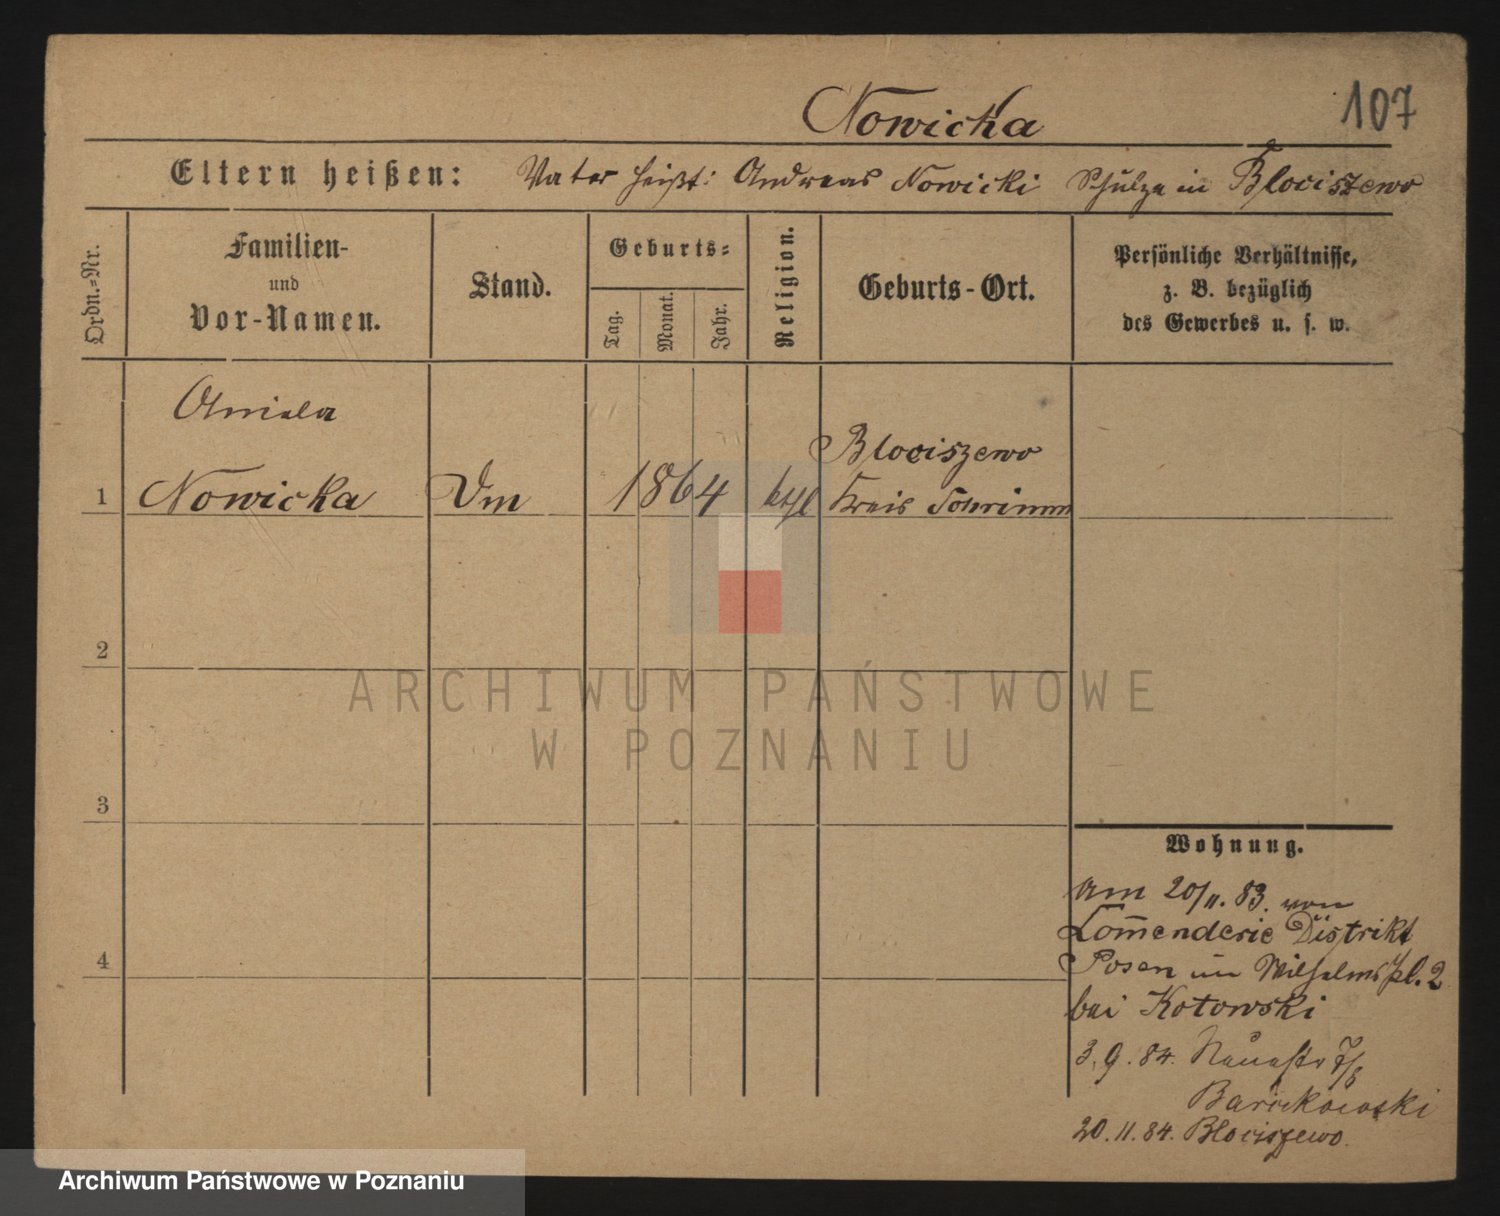 107
Nowicka
Eltern heißen: Vater heißt: Andreas Nowicki Schulze in Blociszewo
Ordn.=Nr.
Familien-
und
Vor-Namen.
Stand.
Geburts=
Tag.
Monat.
Jahr.
Religion.
Geburts-Ort.
Persönliche Verhältnisse,
z. B. bezüglich
des Gewerbes u. s. w.
Aniela
1 Nowicka Dm 1864 ktl Blociszewo
Kreis Schrimm
2
ARCHIWUM PAŃSTWOWE
W POZNANIU
3
Wohnung.
4
am 20/11. 83. von
Com̅enderie Distrikt
Posen in Wilhelmspl. 2
bei Kotowski
3.9.84. Neuestr 7/8
20.11.84. Blociszewo.
Archiwum Państwowe w Poznaniu